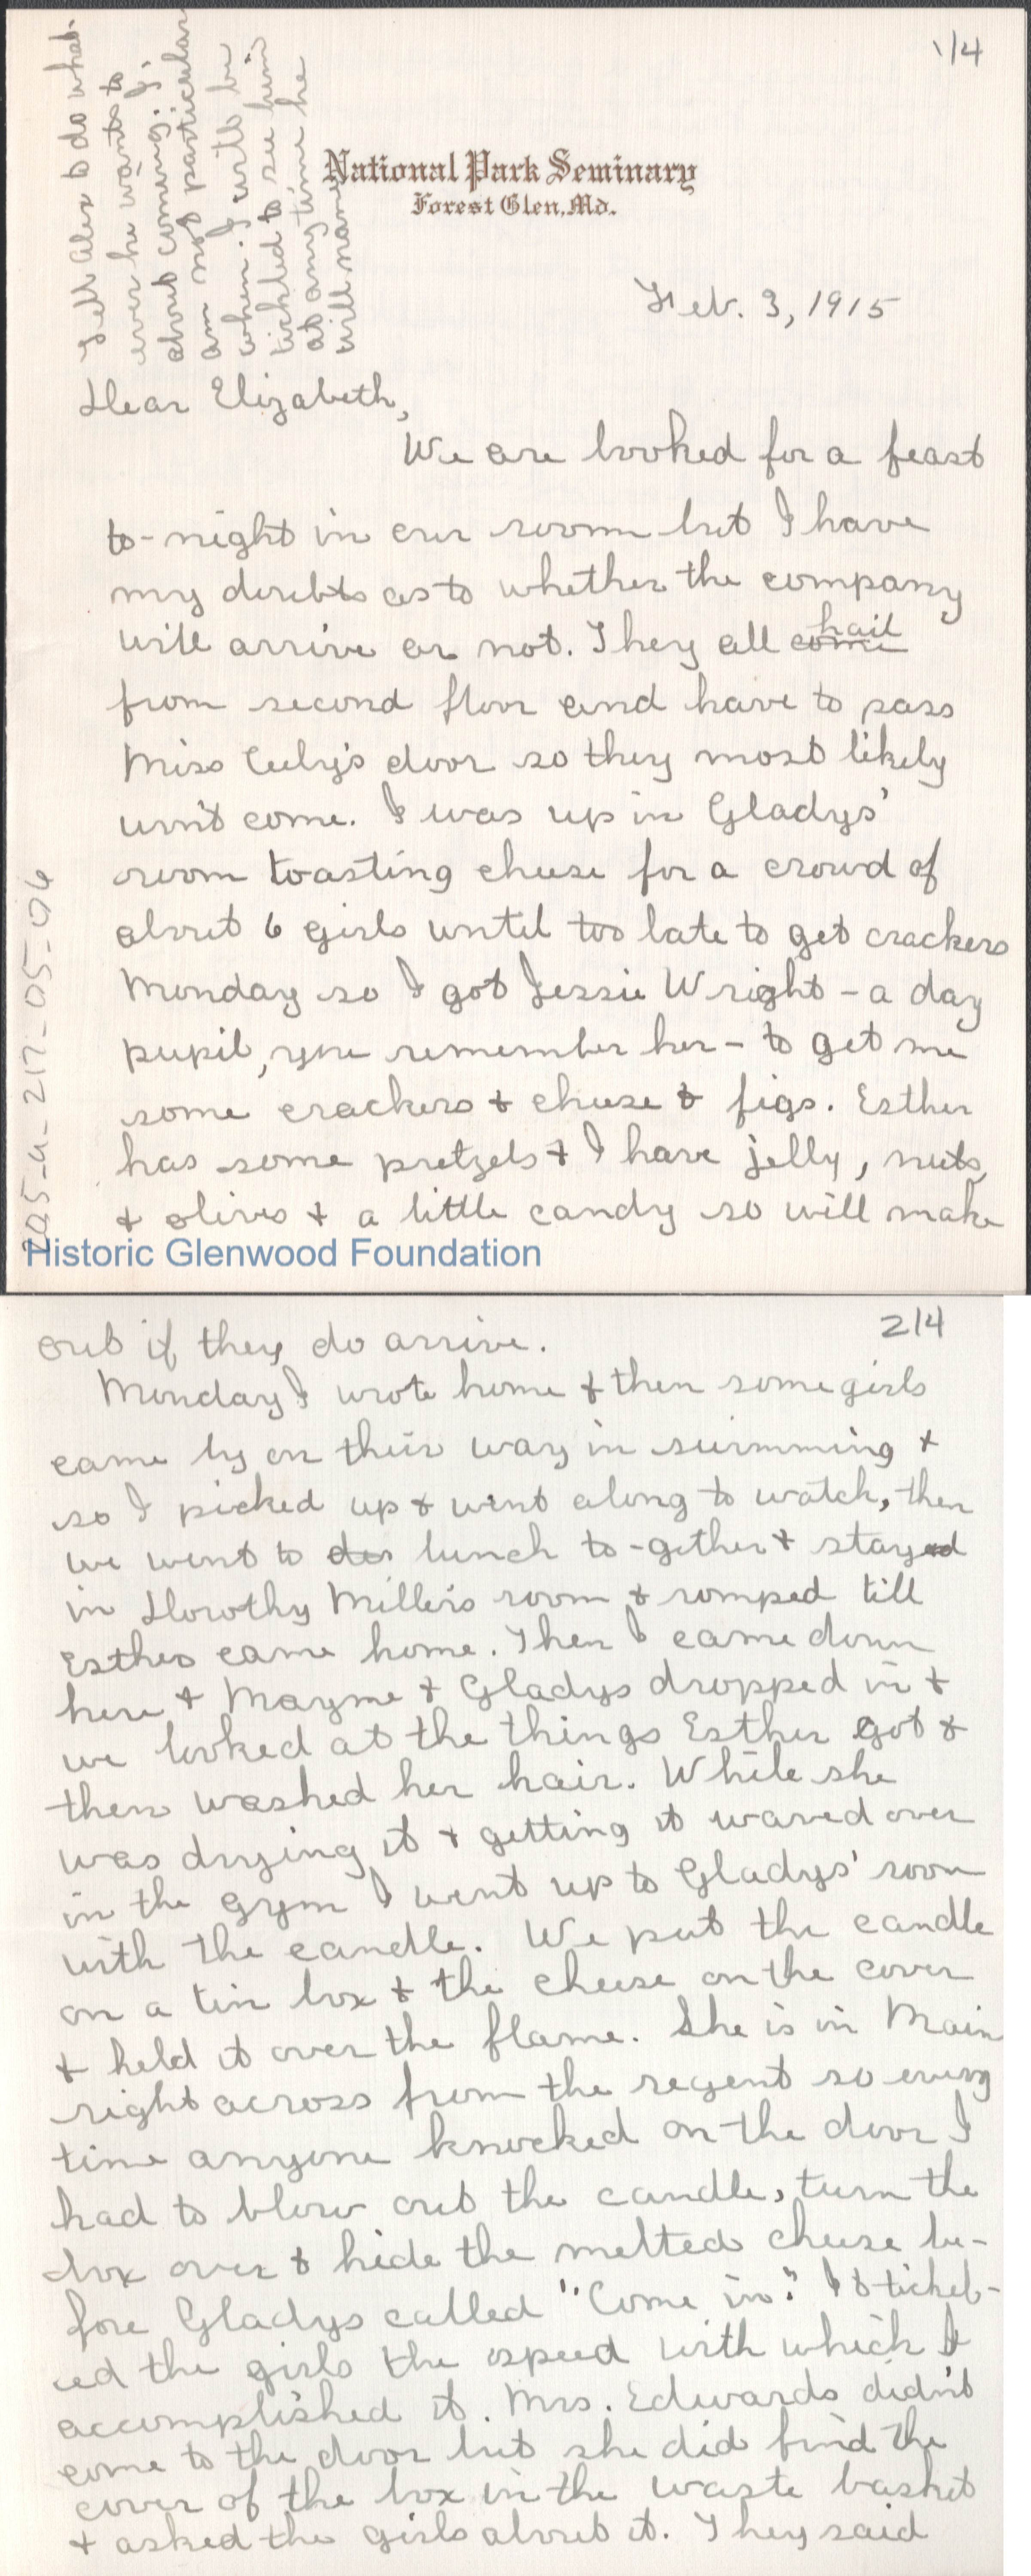 1/4
Tell Alex to do what-
ever he wants to
about coming. I,
am not particular
when. I will be
tickled to see him
at any time he
will name
National Park Seminary
Forest Glen, Md.
Feb. 3, 1915
Dear Elizabeth,
We are booked for a feast
to-night in our room but I have
my doubts as to whether the company
will arrive or not. They all come hail
from second floor and have to pass
Miss door so they most likely
won't come. I was up in Gladys'
room toasting cheese for a crowd of
about 6 girls until too late to get crackers
Monday so I got Jessie Wright - a day
pupil, you remember her - to get me
some crackers & cheese & figs. Esther
has some pretzels & I have jelly, nuts,
& olives & a little candy so will make
205-a-217-05-06
Historic Glenwood Foundation
2/4
out if they do arrive.
Monday I wrote home & then some girls
came by on their way in swimming &
so I picked up & went along to watch, then
we went to lunch to-gether & stayed
in Dorothy Miller's room & romped till
Esther came home. Then I came down
here & Mayme & Gladys dropped in &
we looked at the things Esther got &
then washed her hair. While she
was drying it & getting it waved over
in the gym I went up to Gladys' room
with the candle. We put the candle
on a tin box & the cheese on the cover
& held it over the flame. She is in Main
right across from the regent so every
time anyone knocked on the door I
had to blow out the candle, turn the
box over & hide the melted cheese be-
fore Gladys called "Come in." It tickel-
ed the girls the speed with which I
accomplished it. Mrs. Edwards didn't
come to the door but she did find the
cover of the box in the waste basket
& asked the girls about it. They said